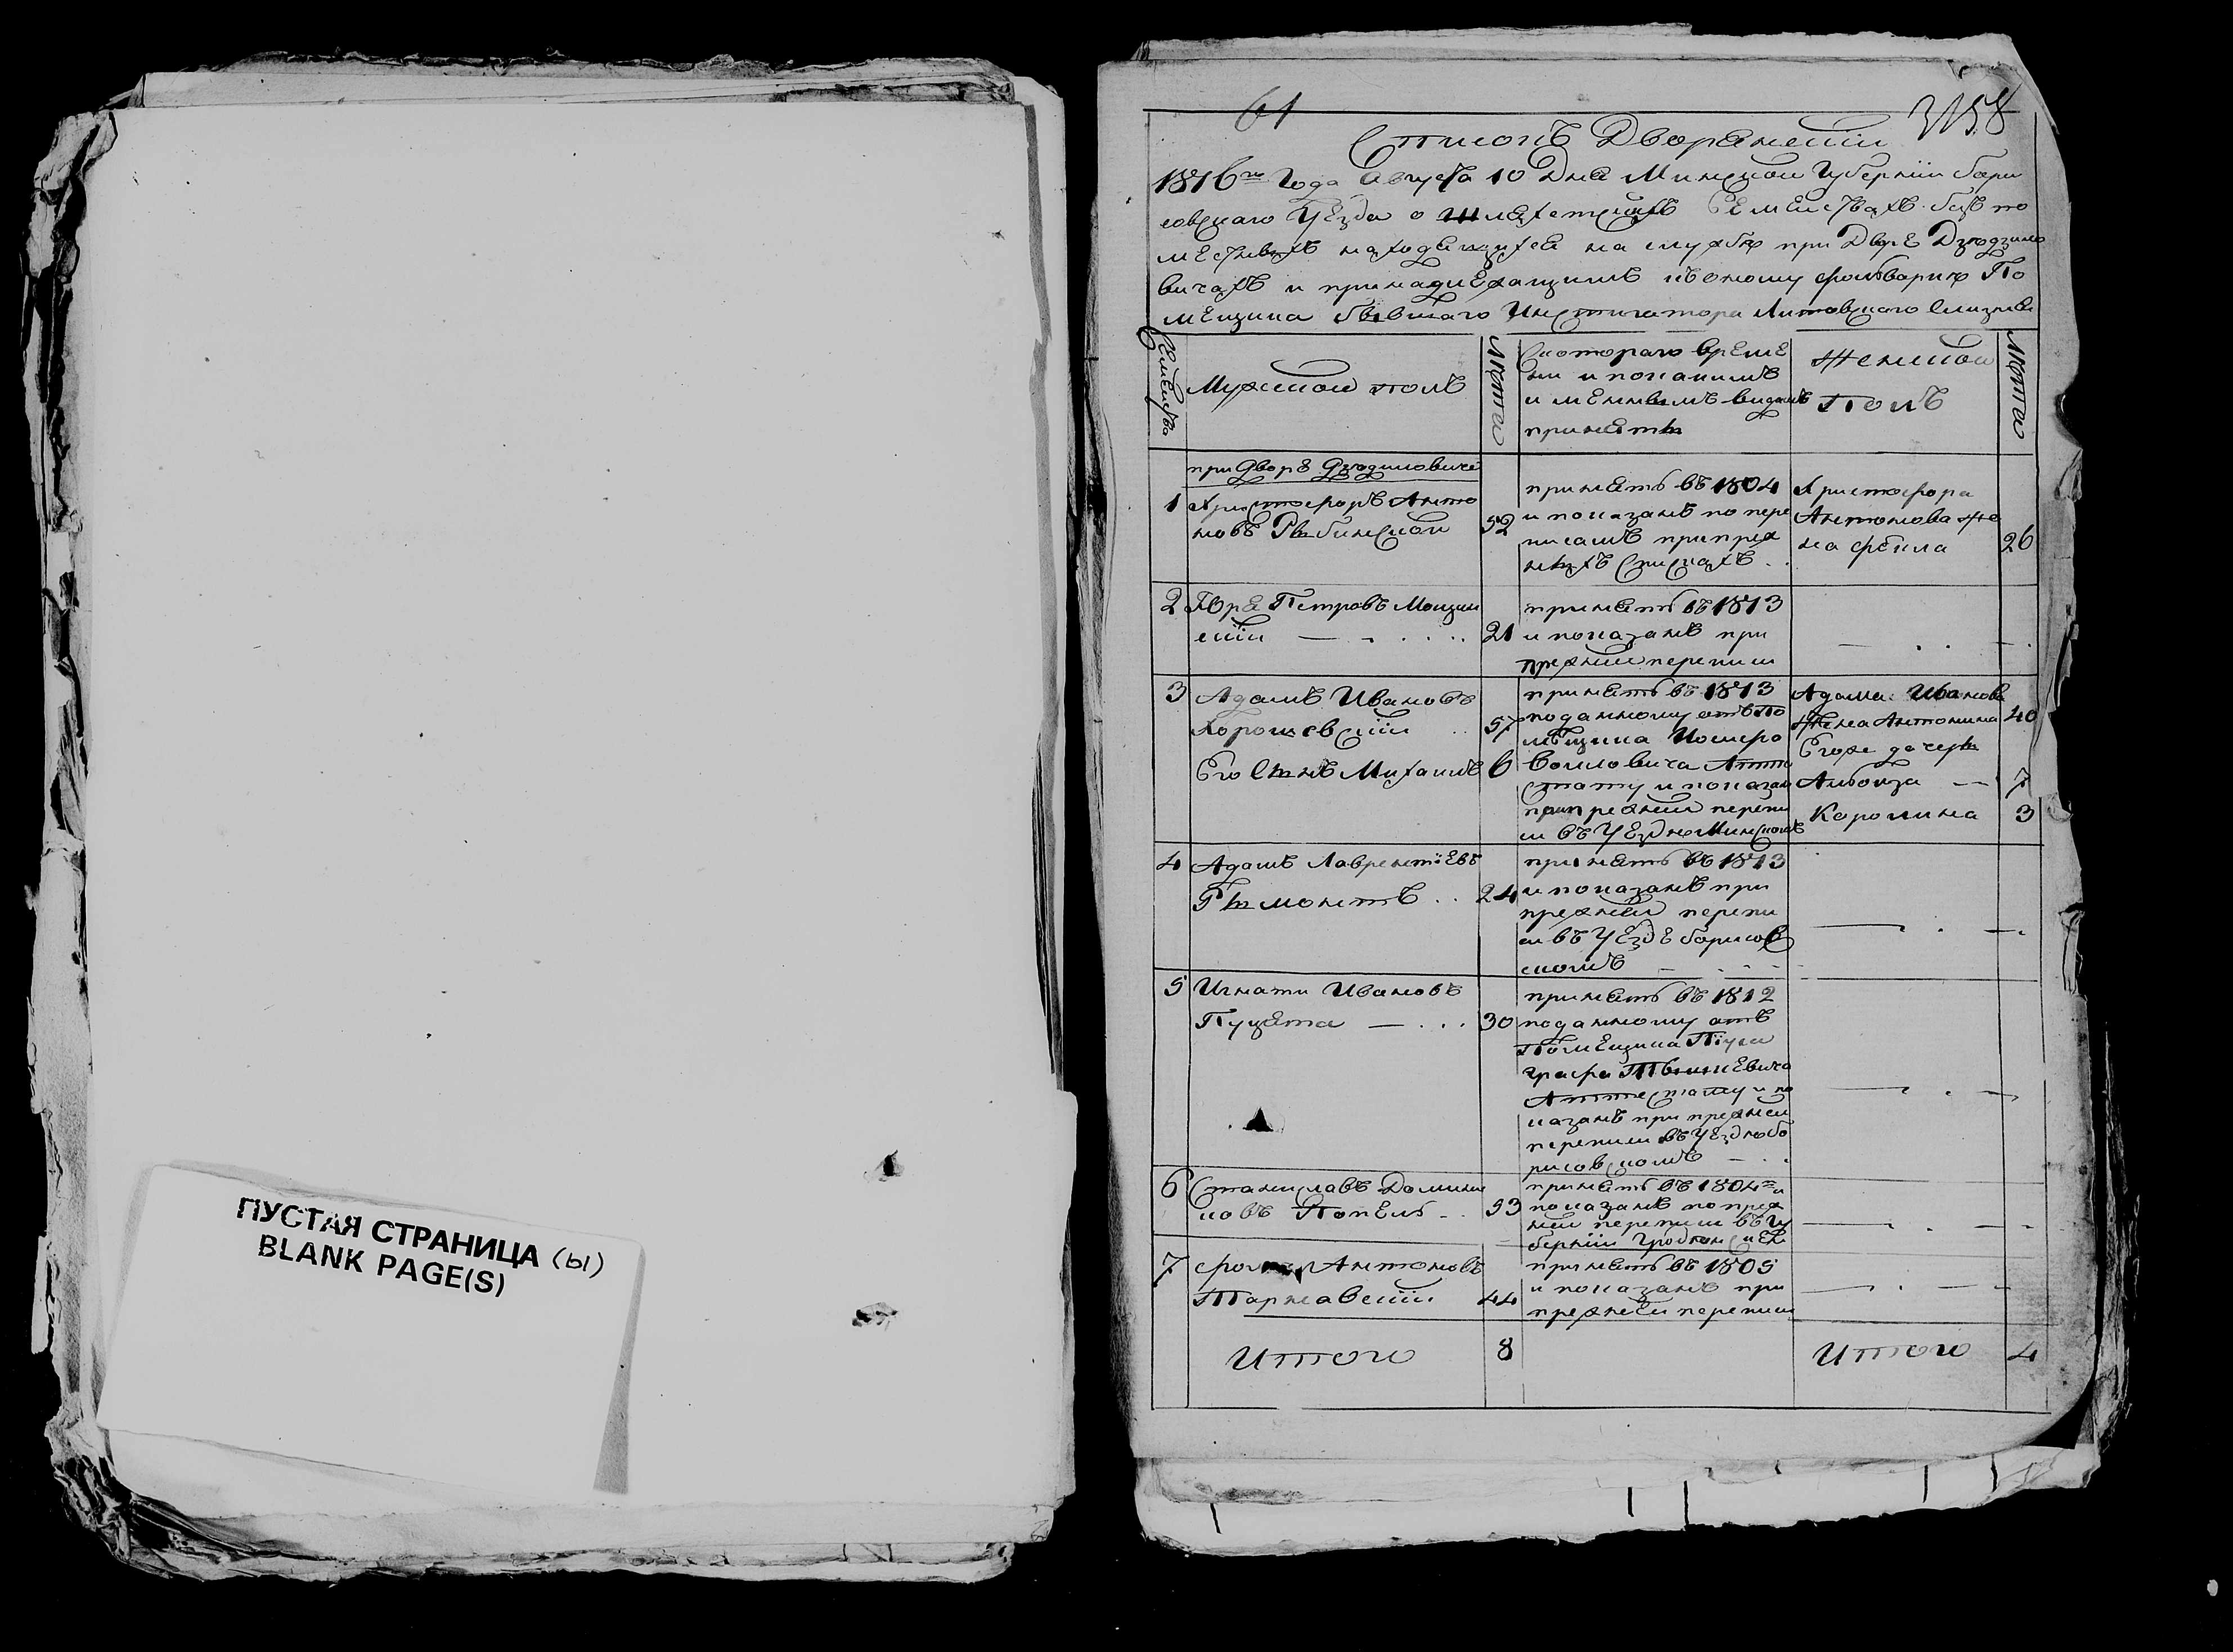 ПУСТАЯ СТРАНИЦА (ы)
BLANK PAGE(S)
61
3158
Списокъ Дворянскій
1816го Года Августа 10 Дня Минской Губерніи Бори
совскаго Уезда о шляхетскихъ Семействахъ безъ по
местныхъ находящихся на службе при Дворе Дзюдзило
вичахъ и принадлежащимъ къ оному фольварию По
мещика бывшаго Инстигатора Литовскаго
Семейства
Мужской полъ
Лета
Скотораго време
ни и покакимъ
и меннымъ видамъ
приняты
Женской
Полъ
Лета
при Дворе Дзюдиловиче
1 Христофоръ Анто
новъ Рыбинской 52
принятъ въ 1804
и показанъ по пере
писамъ при преж
ныхъ Спискахъ
Христофора
Антонова же
на Фекла 26
2 Юря Петровъ Мощин
скій 21
принятъ въ 1813
и показанъ при
прежней переписи
3 Адамъ Ивановъ
Хорошевскій 57
Его Сынъ Михаилъ 6
принятъ въ 1813
поданному отъ По
мещика
Воиловича Атте
стату и показан
при прежней перепи
си въ Уезде Минскомъ
Адама Иванова
жена Антонина 40
Егоже дочеры
Алвоиза 7
Каролина 3
4 Адамъ Лаврентіевъ
Рымонтъ 24
принятъ въ 1813
и показанъ при
прежней перепи
си въ Уезде Борисов
скомъ
5 Игнати Ивановъ
Пуцята 30
принятъ въ 1812
поданному отъ
Помещика
Графа Тышкевича
Аттестату и по
казанъ при прежней
переписи въ Уезде Бо
рисовскомъ
6 Станиславъ Домини
ковъ Попель 53
принятъ въ 1804 и
показанъ по преж
ней переписи въ Гу
берніи Гродненской
7 Антоновъ
Тарнавскій 44
принятъ въ 1805
и показанъ при
прежней переписи
Итого 8
Итого 4